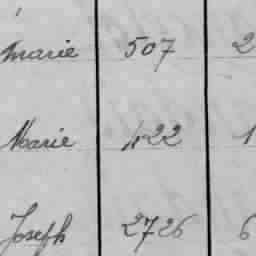 Marie 507 2
Marie 422 1
Joseph 2726 6